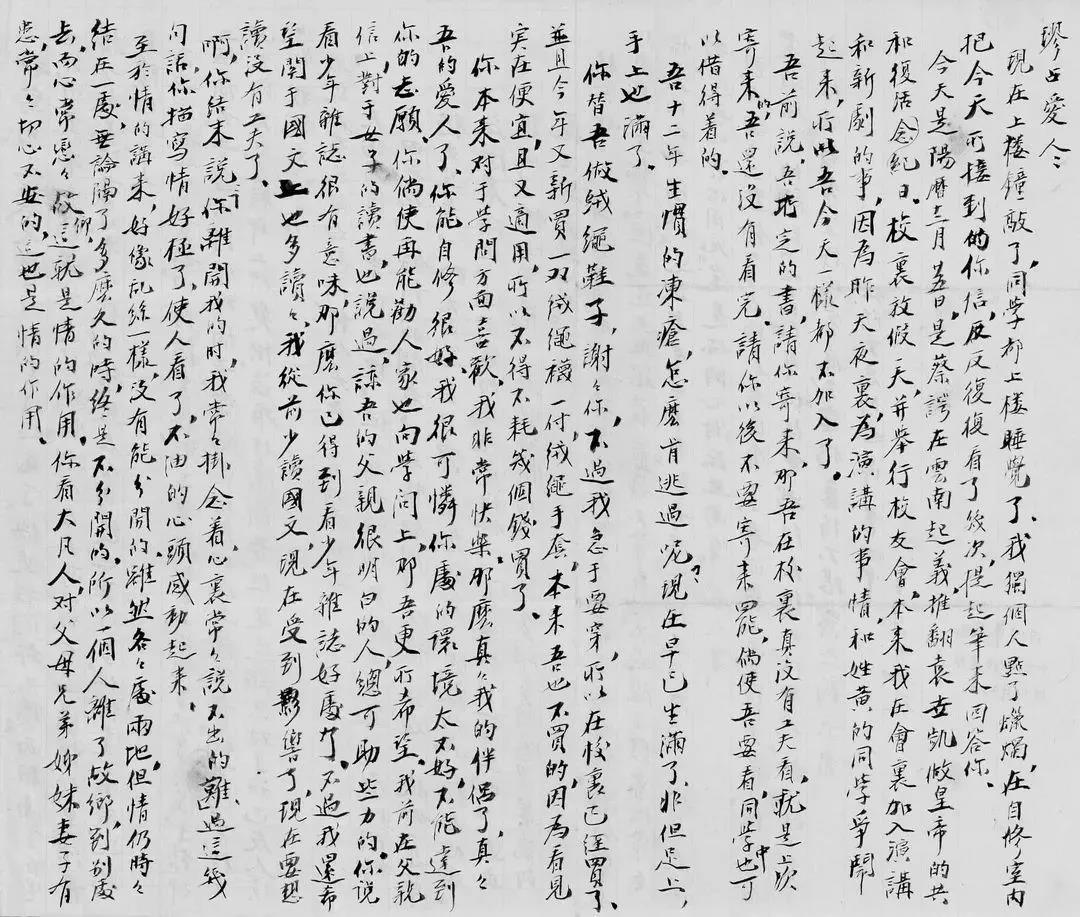 繆女愛人：
現在上樓鐘敲了，同學都上樓睡覺了、我獨個人點了爉燭，在自修室內
把今天所接到的你信，反反復復看了幾次，提起筆來回答你、
今天是陽曆十二月廿五日，是蔡諤在雲南起義，推翻袁世凱做皇帝的共
和復活念紀日。校裏放假一天，并舉行校友會，本來我在會裏加入演講
和新劇的事，因為昨天夜裏，為演講的事情，和姓黃的同學爭鬧
起來，所以吾今天一樣都不加入了。
吾前說，吾所定的書，請你寄來，那吾在校裏真沒有工夫看，就是上次
寄來的，吾還沒有看完、請你以後不要寄來罷，倘使吾要看，同學中也可
以借得着的．
吾十二年生慣的凍瘡，怎麼肯逃過呢？現在早已生滿了，非但足上，
手上也滿了、
你替吾做絨繩鞋子，謝々你，不過我急于要穿，所以在校裏已經買了、
並且今年又新買一双絨繩襪一付絨繩手套，本來吾也不買的，因為看見
实在便宜，且又適用，所以不得不耗幾個錢買了。
你本來对于學問方面喜歡，我非常快樂，那麼真々我的伴侶了，真々
吾的愛人了、你能自修，很好，我很可憐你處的環境太不好，不能達到
你的志願，你倘使再能勸人家也向學問上，那吾更所希望、我前在父親
信上，對于女子的讀書，也說過，諒吾的父親很明白的人，總可助些力的、你說
看少年雜誌很有意味，那麼你已得到看少年雜誌好處了，不過我還希
望関于國文上也多讀々，我從前少讀國文，現在受到影響了，現在要想
讀没有工夫了、
啊，你結末說「你離開我的时，我常々掛念着，心裏常々說不出的難過」這幾
句話，你描寫情好極了，使人看了，不油的心頭感動起來，
至於情的講來，好像乱絲一樣，没有能分開的，雖然各々處兩地，但情仍時々
結在一處，無論隔了多麼久的時，終是不分開的，所以一個人離了故鄉，到別處
去，而心常戀々故鄉，這就是情的作用、你看大凡人，对父母兄弟姊妹妻子有
恙，常々切心不安的，這也是情的作用．